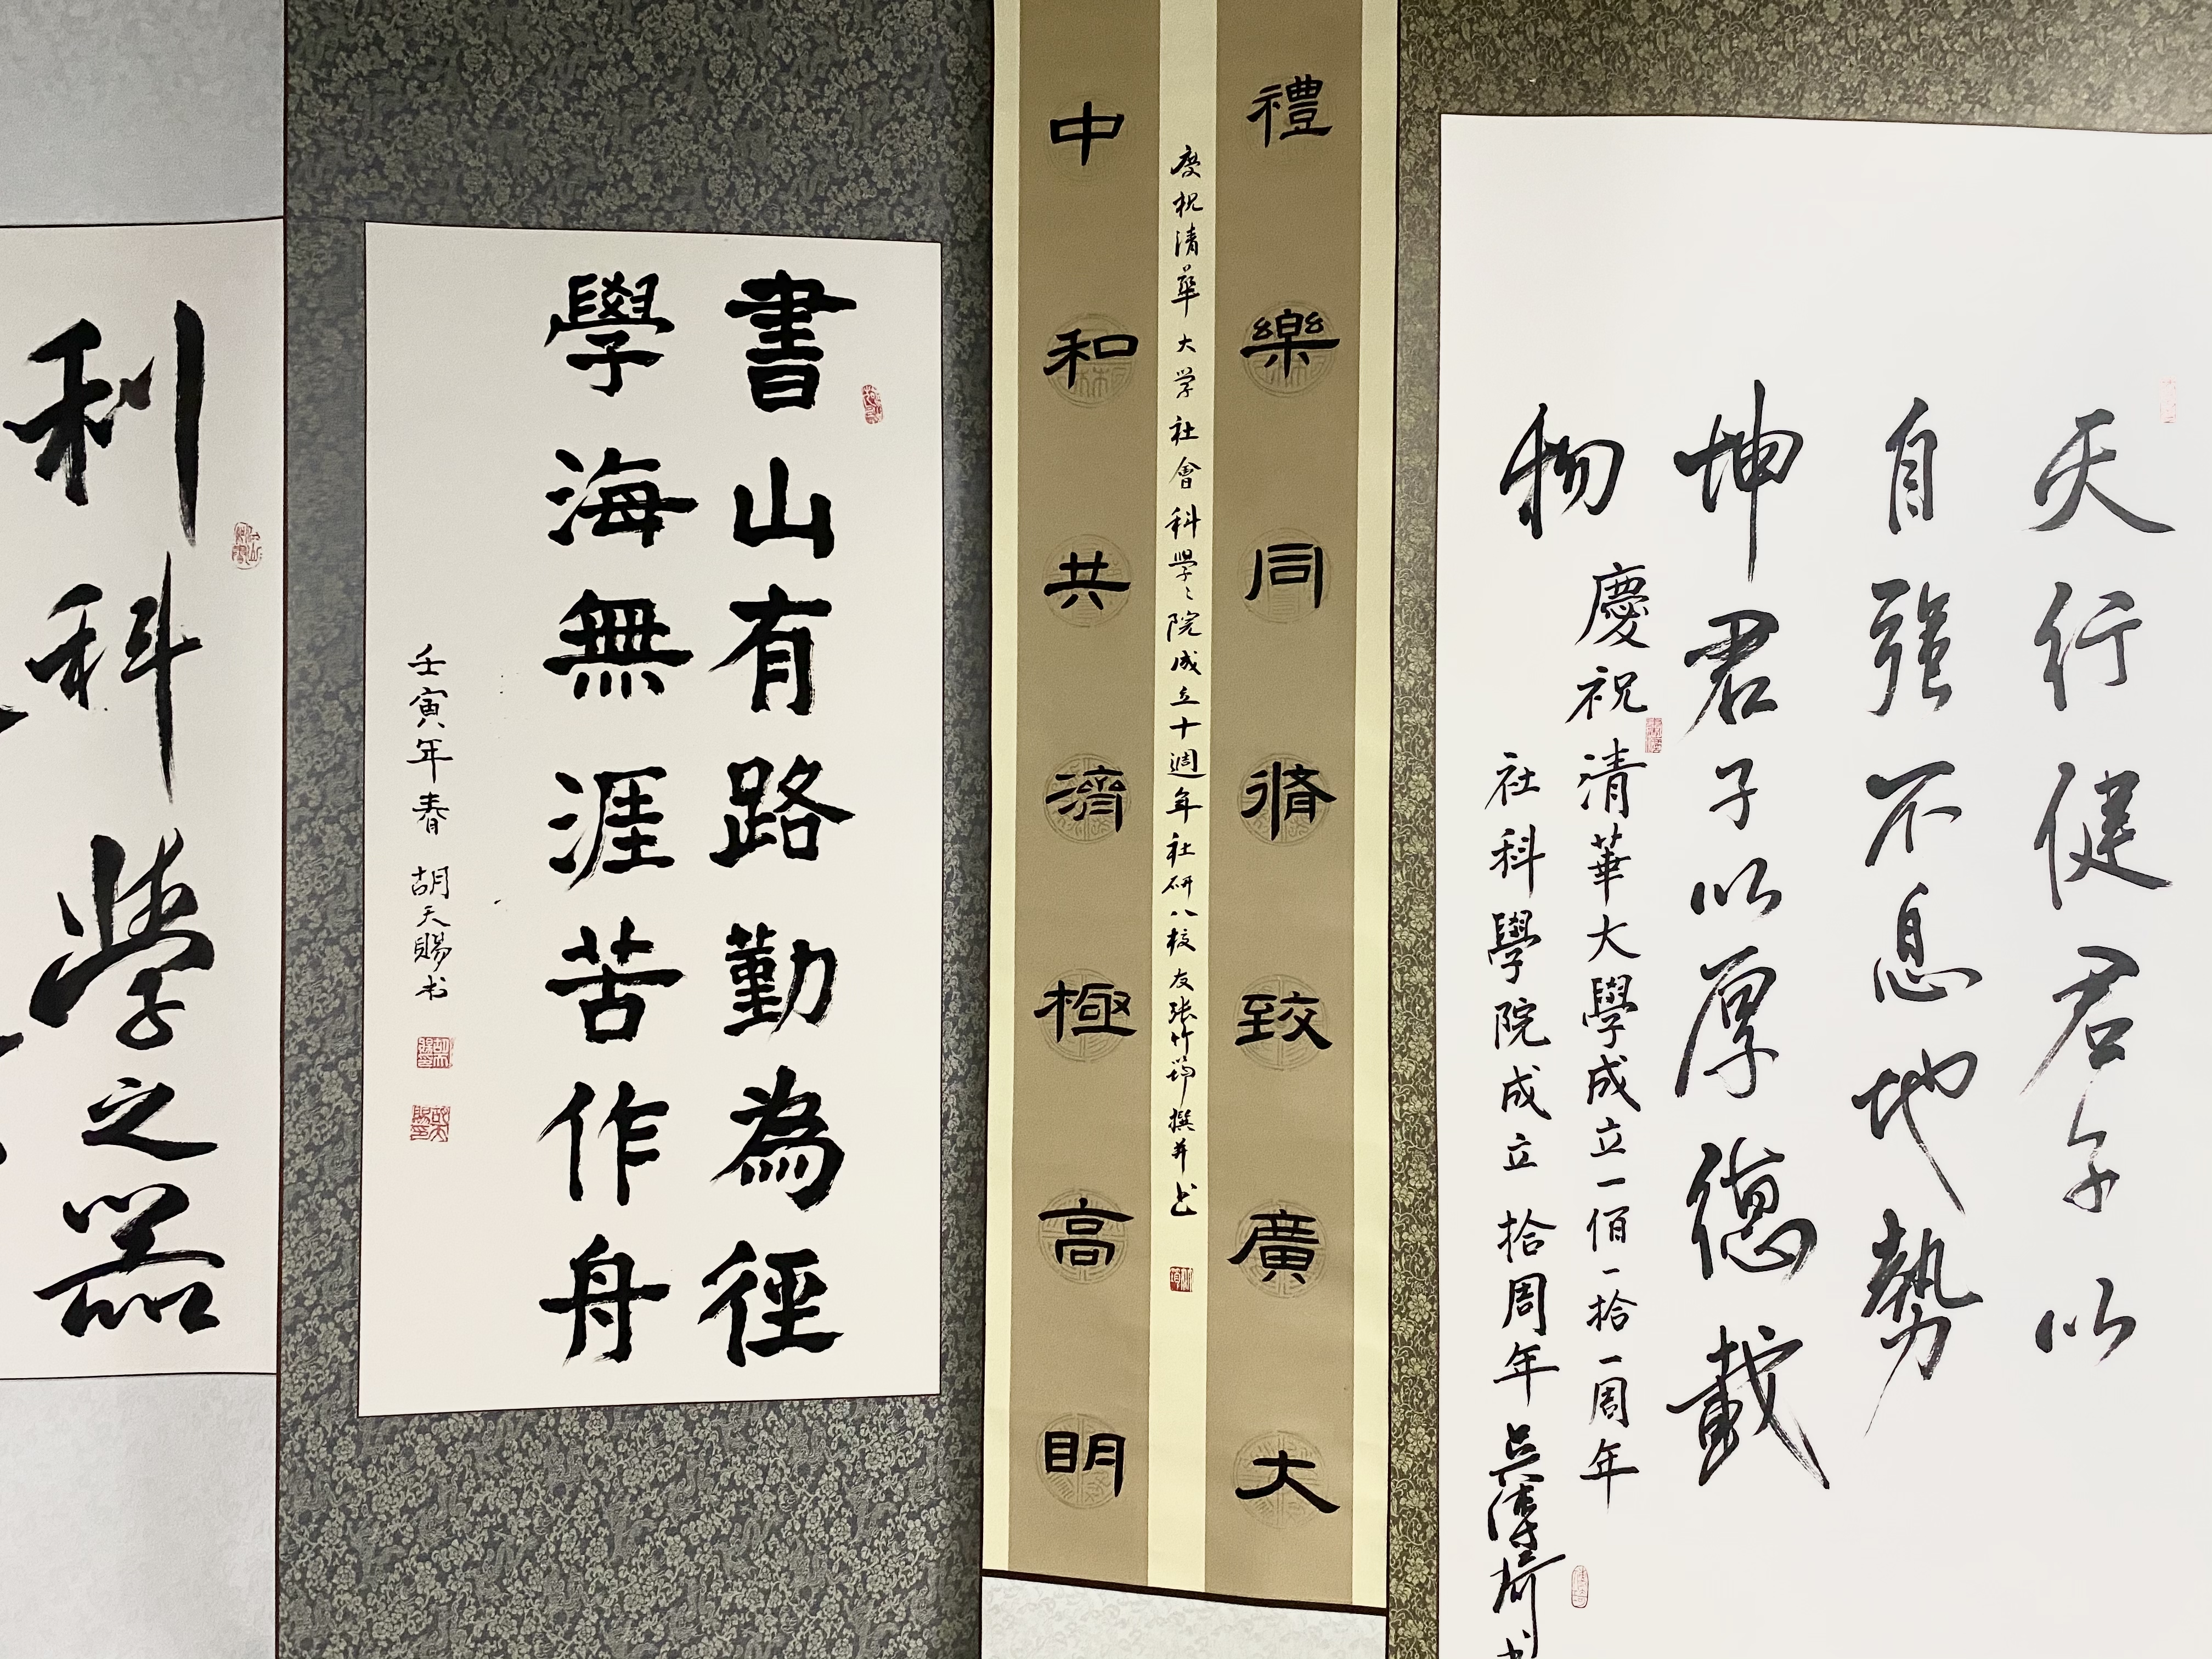 天行健君子以
自強不息地勢
坤君子以厚德載
物
慶祝清華大學成立一佰一拾一周年
社科學院成立拾周年
禮樂同脩致廣大
慶祝清華大学社會科學々院成立十週年社研八校友張竹筠撰并书
中和共濟極高明
書山有路勤為徑
學海無涯苦作舟
壬寅年春 胡天賜书
利科學之器